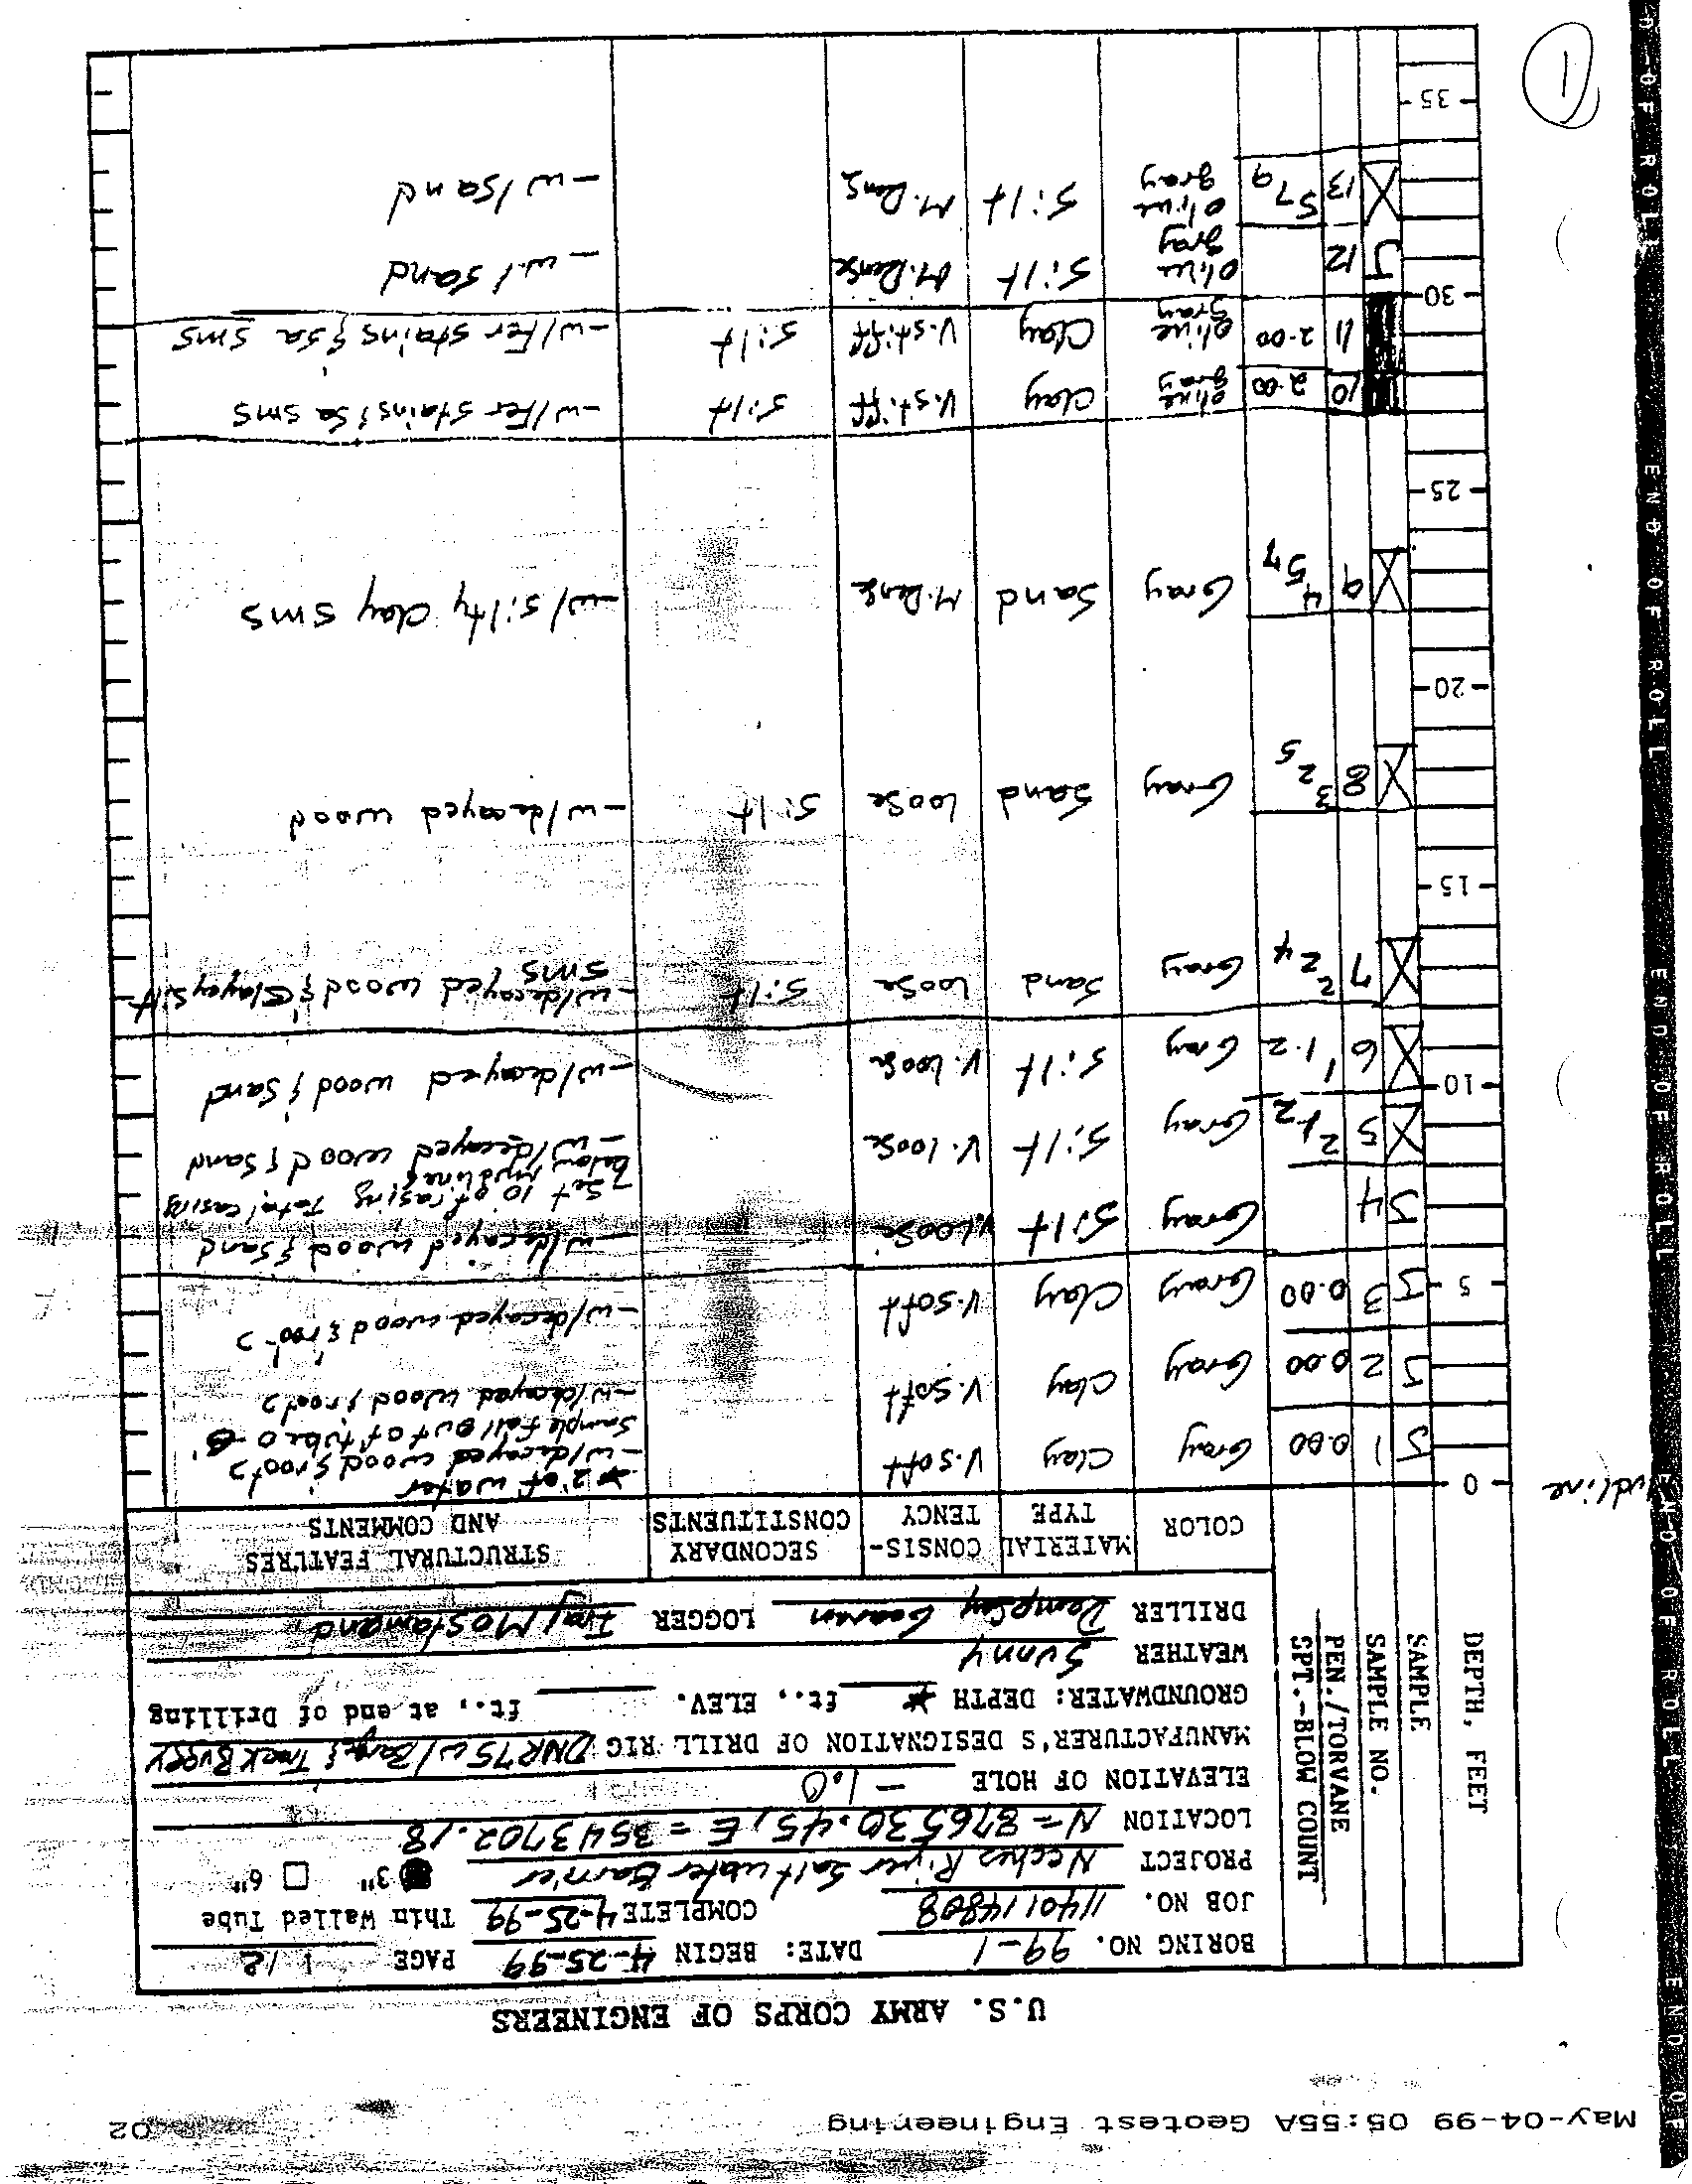 May-04-99 05:55A Geotest Engineering 02
U.S. ARMY CORPS OF ENGINEERS
BORING NO. 99-1 DATE: BEGIN 4-25-99 PAGE 1
JOB NO. 1140114808 COMPLETE 4-25-99 Thin Walled Tube
PROJECT Neches River Salt water Barrier 3" 6"
LOCATION N=876530.45, E=3543702.18
ELEVATION OF HOLE -1.0
MANUFACTURER'S DESIGNATION OF DRILL RIG W/Barge & Track Buggy
GROUNDWATER: DEPTH * ft., ELEV. ft., at end of Drilling
WEATHER Sunny
DRILLER LOGGER
DEPTH, FEET
SAMPLE
SAMPLE NO.
PEN./TORVANE
SPT.-BLOW COUNT
COLOR MATERIAL TYPE CONSIS-TENCY SECONDARY CONSTITUENTS STRUCTURAL FEATURES AND COMMENTS
0
* 2' of water
J 1 0.00 Gray Clay V.soft -w/decayed wood & roots
Sample fall out of tube
J 2 0.00 Gray Clay V.soft -w/decayed wood & roots
5 J 3 0.00 Gray Clay V.soft -w/decayed wood & roots
J 4 Gray Silt V.Loose -w/decayed wood & sand
-Set 10' of casing Total casing
Below Mudline
5 2 1 2 Gray Silt V.loose -w/decayed wood & sand
10 6 1 1-2 Gray Silt V.Loose -w/decayed wood & Sand
7 2 2 4 Gray Sand loose Silt -w/decayed wood & Clayey silt sms
15
8 3 2 5 Gray Sand loose Silt -w/decayed wood
20
9 4 5 7 Gray Sand M.Dense -w/silty clay sms
25
10 2.00 olive gray Clay V.stiff Silt -w/Fer stains & Sa sms
11 2.00 olive gray Clay V.stiff Silt -w/Fer stains & Sa sms
30
J 12 Olive gray Silt M.Dense -w/ sand
13 5 7 9 olive gray Silt M.Dens -w/sand
35
1
END OF ROLL END OF ROLL END OF ROLL END OF ROLL